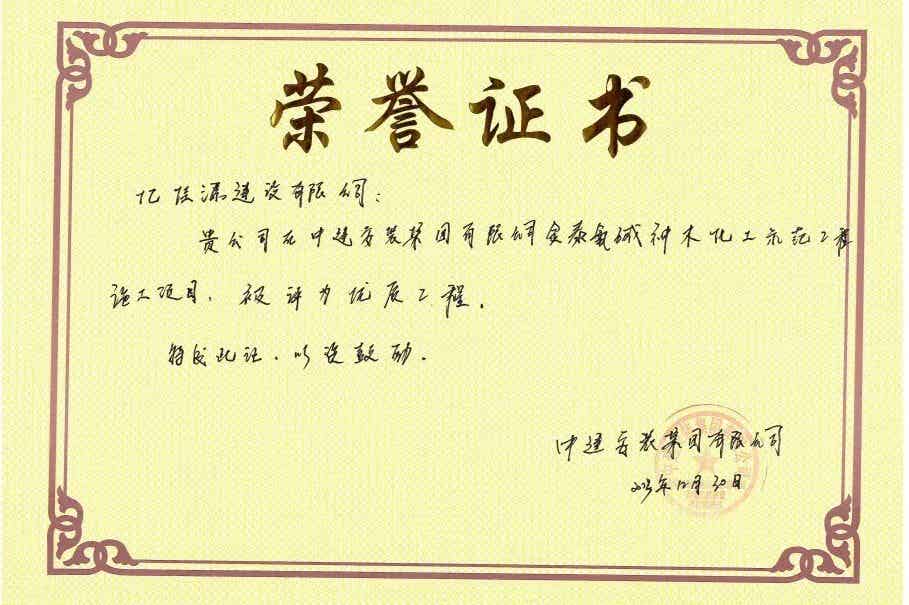 荣誉证书
亿佳源建设有限公司：
贵公司在中建安装集团有限公司金泰氯碱神木化工示范工程
施工项目，被评为优质工程。
特发此证，以资鼓励。
中建安装集团有限公司
2023年12月30日